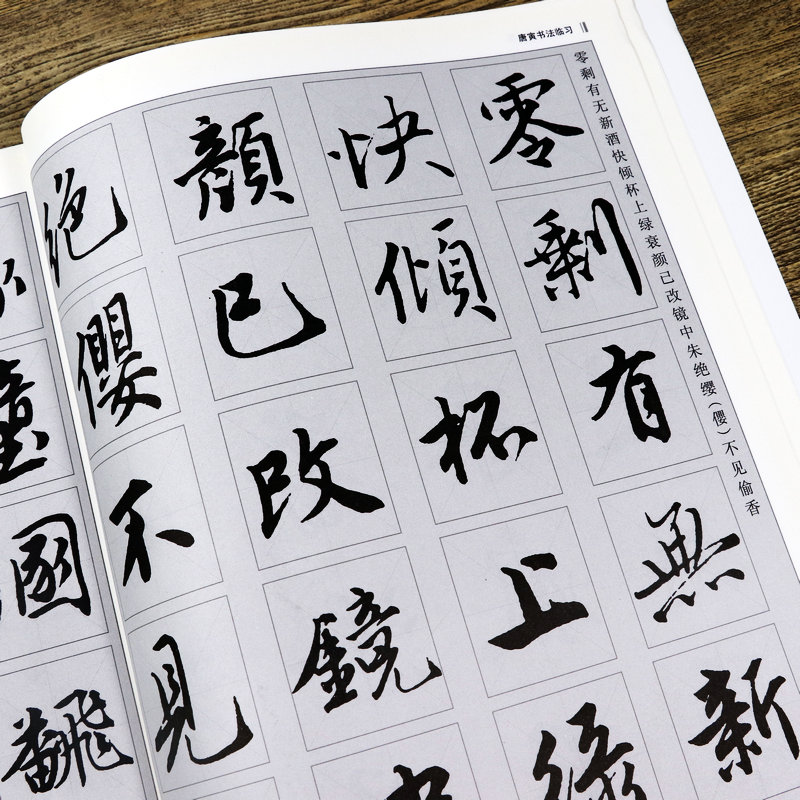 唐寅书法临习
零剩有无新酒快倾杯上绿衰颜已改镜中朱绝缨（）不见偷香
零剩有無新
快傾杯上緑
顔已改鏡
絶不見
國飜